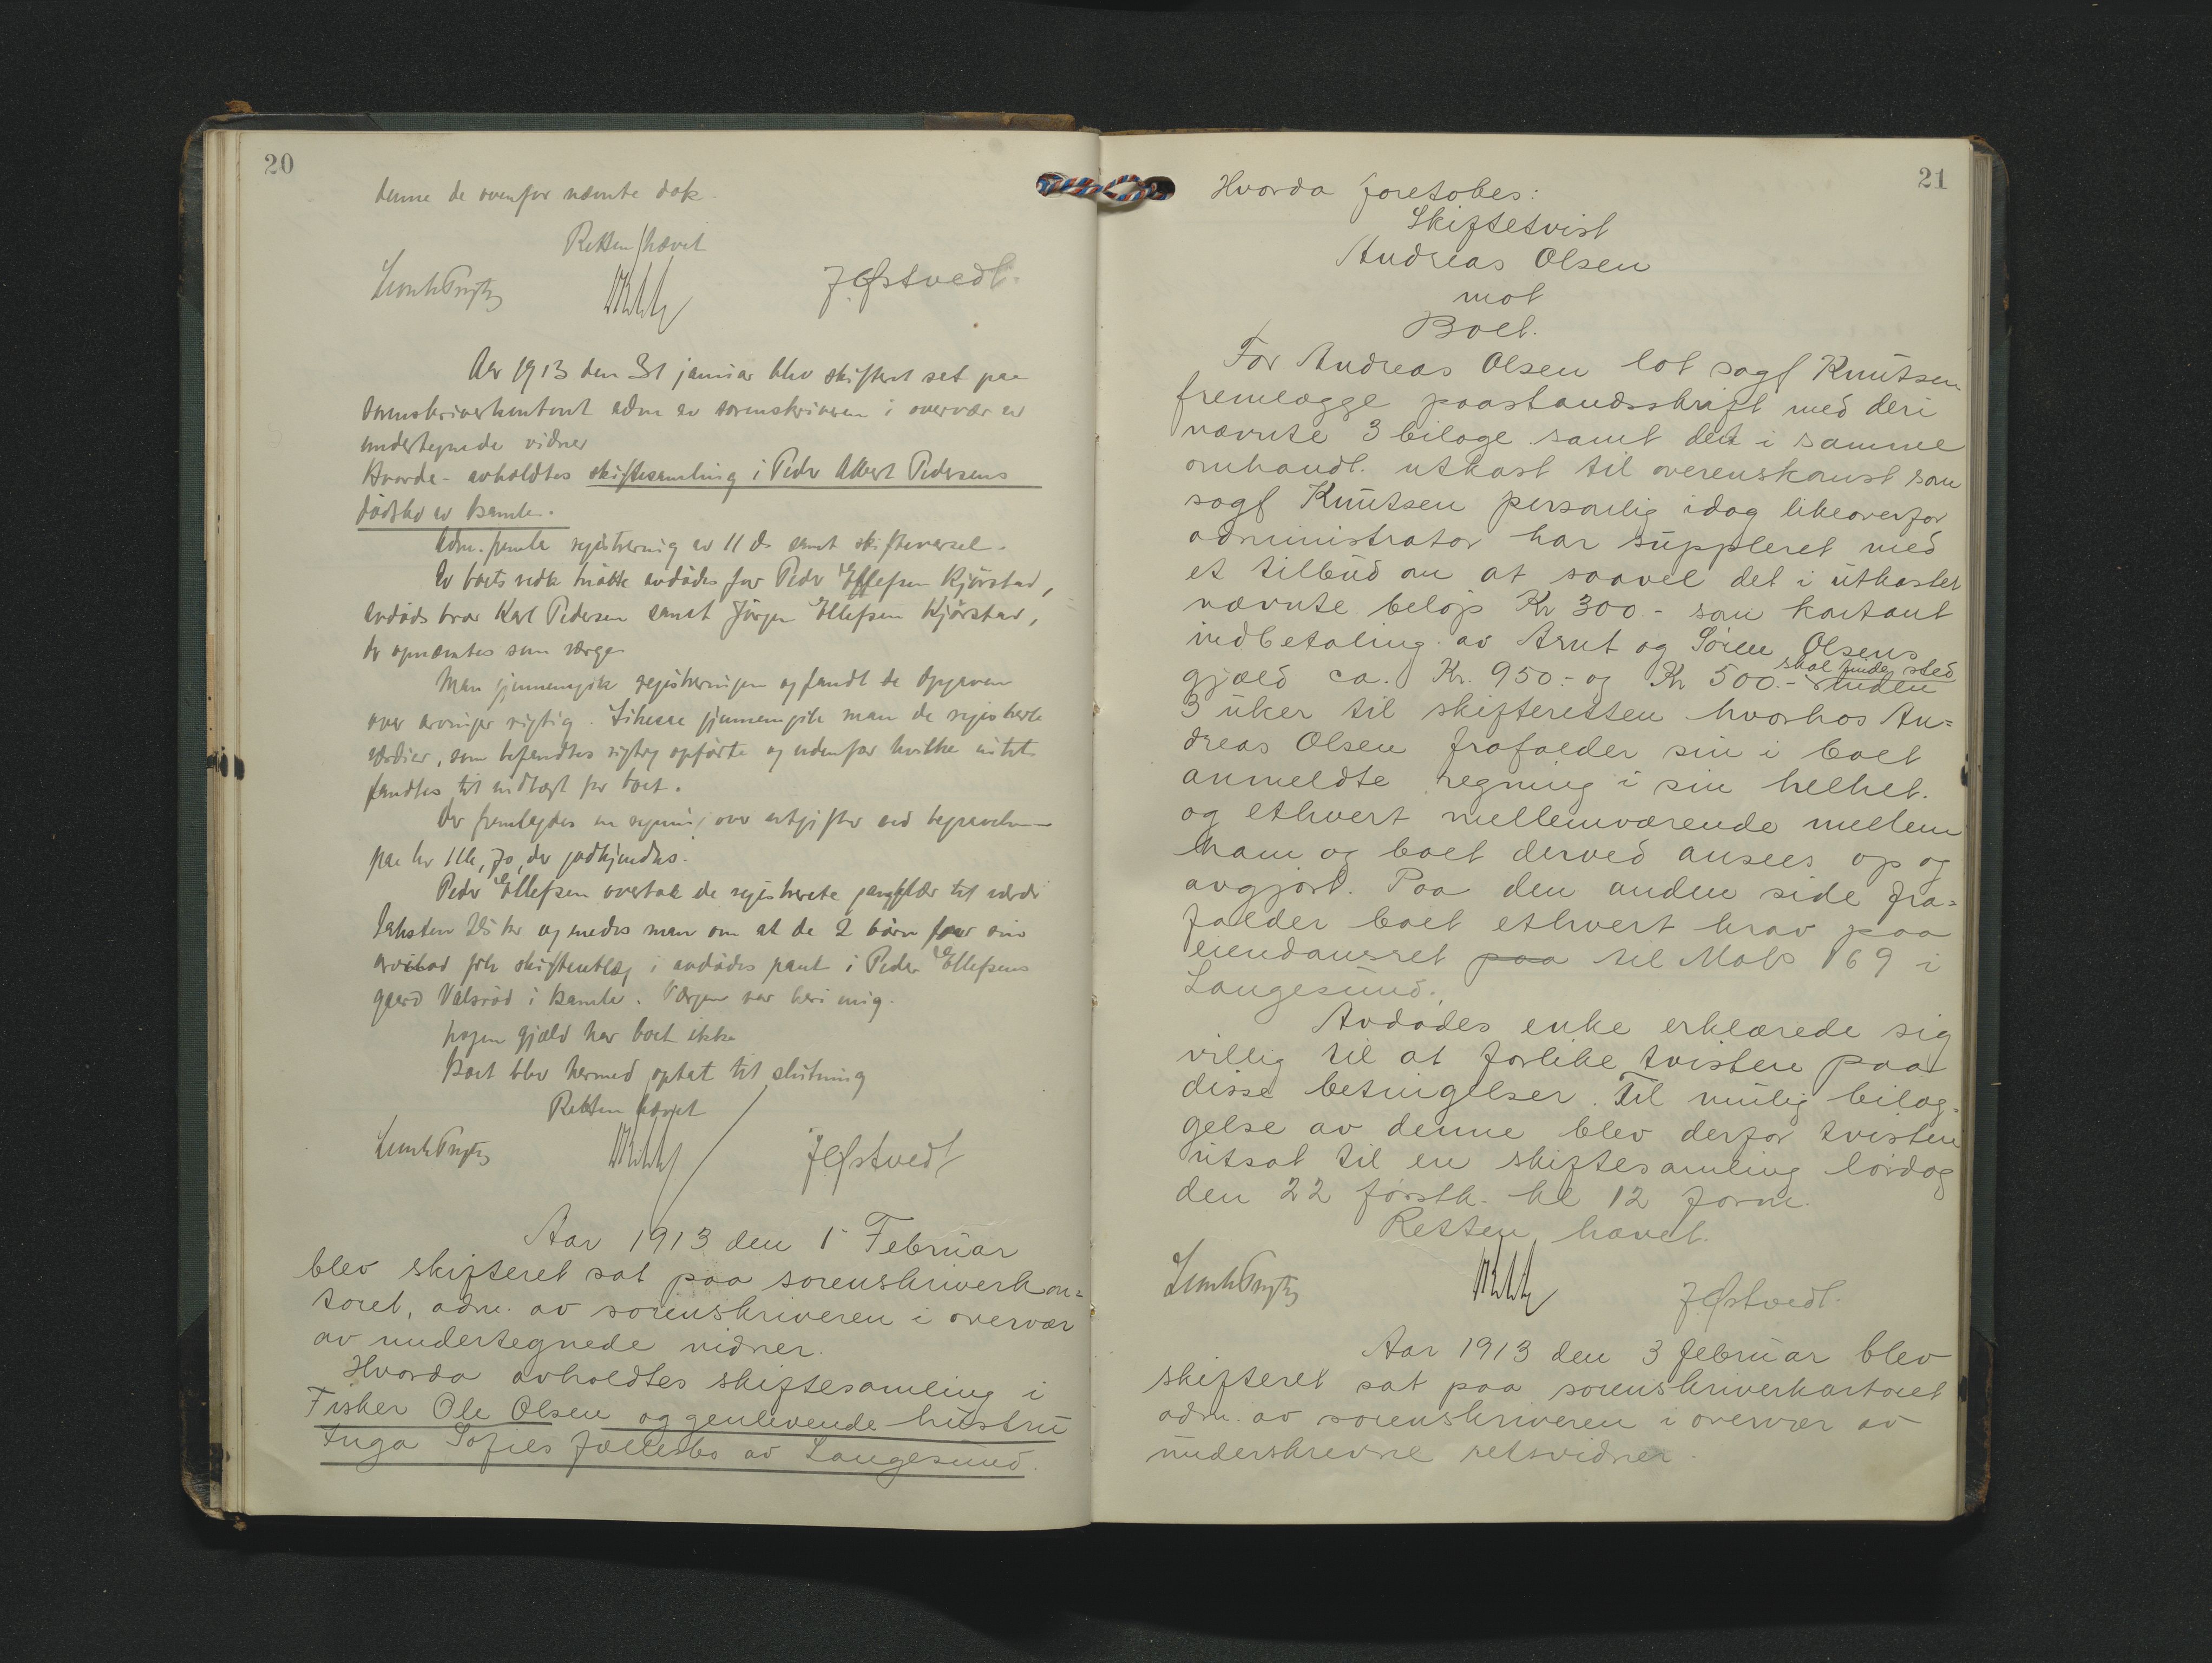 20
denne de ovenfor nævnte dok.
Retten hævet
J Østvedt.
Aar 1913 den 31 januar blev skifteret sat paa
sorenskriverkontoret adm av sorenskriveren i overvær av
undertegnede vidner
Hvorda avholdtes skiftesamling i Peder Albert Pedersens
dødsbo av Bamle.
Adm. fremla registrering av 11 ds samt skiftevarsel.
Av boets vedk møtte avdødes far Peder Ellefsen Kjørstad,
avdøds bror Karl Pedersen samt Jørgen Ellefsen Kjørstad,
der opnævntes som værge
Man gjennemgik registreringen og fandt de opgavn
over arvinger rigtig. Likesaa gjennemgik man de registrerte
værdier, som befandtes rigtig opførte og udenfor hvilke intet
fandtes til indtægt for boet.
Der fremlagdes en regning over utgifter ved begravelsen
paa kr 116,70, der godkjendtes.
Peder Ellefsen overtok de registrerte gangklær til værdi
taksten 25 kr og enedes man om at de 2 børn faar sin
arvelod som skifteutlæg i avdødes pant i Peder Ellefsens
gaard Valsrød i Bamle. Værgen var heri enig.
Nogen gjæld har boet ikke
Boet blev hermed optat til slutning
Retten hævet
J Østvedt
Aar 1913 den 1 Februar
blev skifteret sat paa sorenskriverkon=
toret, adm. av sorenskriveren i overvær
av undertegnede vidner.
Hvorda avholdtes skiftesamling i
Fisker Ole Olsen og genlevende hustru
Inga Sofies fællesbo av Langesund.
21
Hvorda foretokes:
Skiftetvist
Andreas Olsen
mot
Boet.
For Andreas Olsen lot sagf Knutsen
fremlægge paastandsskrift med deri
nævnte 3 bilage samt det i samme
omhandl. utkast til overenskomst som
sagf Knutsen personlig idag likeoverfor
administrator har suppleret med
et tilbud om at saavel det i utkastet
nævnte beløp Kr 300.- som kontant
indbetaling av Arnt og Sören Olsens
skal finde sted
gjæld ca. Kr. 950.- og Kr 500.- inden
3 uker til skifteretten hvorhos An=
dreas Olsen frafalder sin i boet
anmeldte regning i sin helhet.
og ethvert mellemværende mellem
ham og boet derved ansees op og
avgjort. Paa den anden side fra=
falder boet ethvert krav paa
eiendomsret paa til Matr 169 i
Langesund.
Avdødes enke erklærede sig
villig til at forlike tvisten paa
disse betingelser. Til mulig bilæg=
gelse av denne blev derfor tvisten
utsat til en skiftesamling lørdag
den 22 førstk. kl 12 form.
Retten hævet.
J Østvedt.
Aar 1913 den 3 februar blev
skifteret sat paa sorenskriverkontoret
adm. av sorenskriveren i overvær av
underskrevne retsvidner.